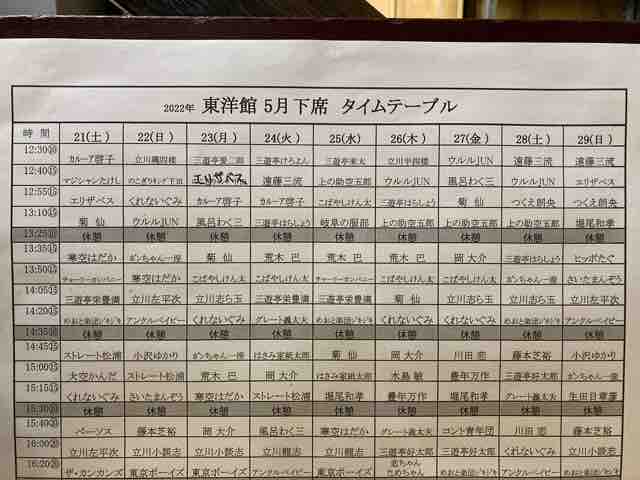 2022年 東洋館 5月下席 タイムテーブル
時間 21(土) 22(日) 23(月) 24(火) 25(水) 26(木) 27(金) 28(土) 29(日)
12:30⑩ カルーア啓子 立川幸四楼 三遊亭けろよん 三遊亭楽太 立川幸四楼 ウルルJUN 遠藤三流 遠藤三流
12:40⑮ マジシャンたけし のこぎりキング下田 エリザベス 遠藤三流 上の助空五郎 ウルルJUN 風呂わく三 ウルルJUN エリザベス
12:55⑮ エリザベス くれないぐみ カルーア啓子 カルーア啓子 こばやしけん太 三遊亭はらしょう 菊仙 つくえ朗央 つくえ朗央
13:10⑮ 菊仙 ウルルJUN 風呂わく三 三遊亭はらしょう 岐阜の服部 上の助空五郎 上の助空五郎 上の助空五郎 堀尾和孝
13:25⑩ 休憩 休憩 休憩 休憩 休憩 休憩 休憩 休憩 休憩
13:35⑮ 寒空はだか ガンちゃん一座 菊仙 荒木巴 荒木巴 荒木巴 岡大介 三遊亭はらしょう ヒッポたぐ
13:50⑮ チャーリーカンパニー 寒空はだか こばやしけん太 こばやしけん太 チャーリーカンパニー こばやしけん太 こばやしけん太 ガンちゃん一座 さいたまんぞう
14:05⑮ 三遊亭栄豊満 立川左平次 立川志ら玉 三遊亭栄豊満 三遊亭栄豊満 菊仙 立川志ら玉 立川志ら玉 立川左平次
14:20⑮ めおと楽団ジキジキ アンクルベイビー くれないぐみ グレート義太夫 めおと楽団ジキジキ くれないぐみ くれないぐみ めおと楽団ジキジキ アンクルベイビー
14:35⑩ 休憩 休憩 休憩 休憩 休憩 休憩 休憩 休憩 休憩
14:45⑮ ストレート松浦 小沢ゆかり ガンちゃん一座 はさみ家紙太郎 菊仙 岡大介 川田恋 藤本芝裕 小沢ゆかり
15:00⑮ 大空かんだ ストレート松浦 荒木巴 岡大介 はさみ家紙太郎 水島敏 豊年万作 三遊亭好太郎 ガンちゃん一座
15:15⑮ くれないぐみ さいたまんぞう 寒空はだか ストレート松浦 堀尾和孝 豊年万作 堀尾和孝 グレート義太夫 生田目章彦
15:30⑩ 休憩 休憩 休憩 休憩 休憩 休憩 休憩 休憩 休憩
15:40⑳ ペーソス 藤本芝裕 岡大介 風呂わく三 寒空はだか グレート義太夫 コント青年団 川田恋 藤本芝裕
16:00⑳ 立川左平次 立川小談志 立川小談志 立川龍志 立川龍志 三遊亭好太郎 三遊亭好太郎 くれないぐみ 立川小談志
16:20⑳ ザ・カンカンズ 東京ボーイズ 東京ボーイズ アンクルベイビー 東京ボーイズ めおと楽団ジキジキ アンクルベイビー めおと楽団ジキジキ